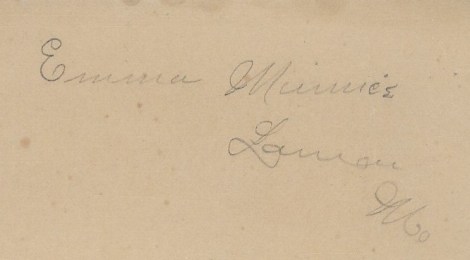 Emma Minnie
Lamar
Mo